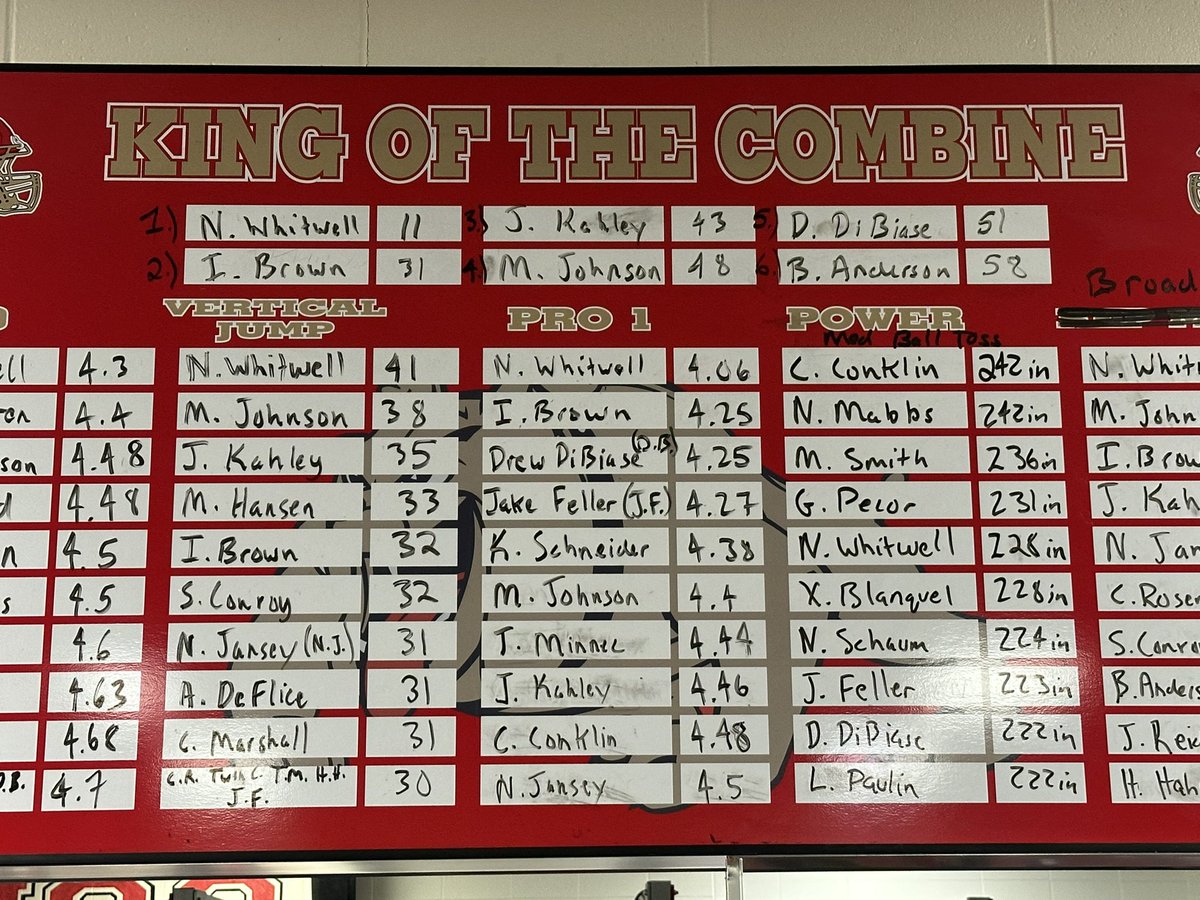 KING OF THE COMBINE
1.) N. Whitwell 11 3.) J. Kahley 43 5.) D. DiBiase 51
2.) I. Brown 31 4.) M. Johnson 48 6.) B. Anderson 58
Broad
VERTICAL JUMP PRO 1 POWER
Med Ball Toss
ell 4.3 N. Whitwell 41 N. Whitwell 4.06 C. Conklin 242in N. Whitw
4.4 M. Johnson 38 I. Brown 4.25 N. Mabbs 242in M. John
son 4.48 J. Kahley 35 Drew DiBiase (D.B.) 4.25 M. Smith 236in I. Brow
d 4.48 M. Hansen 33 Jake Feller (J.F.) 4.27 G. Pecor 231in J. Kah
n 4.5 I. Brown 32 K. Schneider 4.38 N. Whitwell 228in N. Jan
s 4.5 S. Conroy 32 M. Johnson 4.4 X. Blanquel 228in C. Rosen
4.6 N. Jansey (N.J.) 31 J. Minnec 4.44 N. Schaum 224in S. Conro
4.63 A. DeFlice 31 J. Kahley 4.46 J. Feller 223in B. Ander
4.68 C. Marshall 31 C. Conklin 4.48 D. DiBiase 222in J. Rei
D.B. 4.7 C.R. Twin C. T.M. H.H. J.F. 30 N. Jansey 4.5 L. Paulin 222in H. Hah